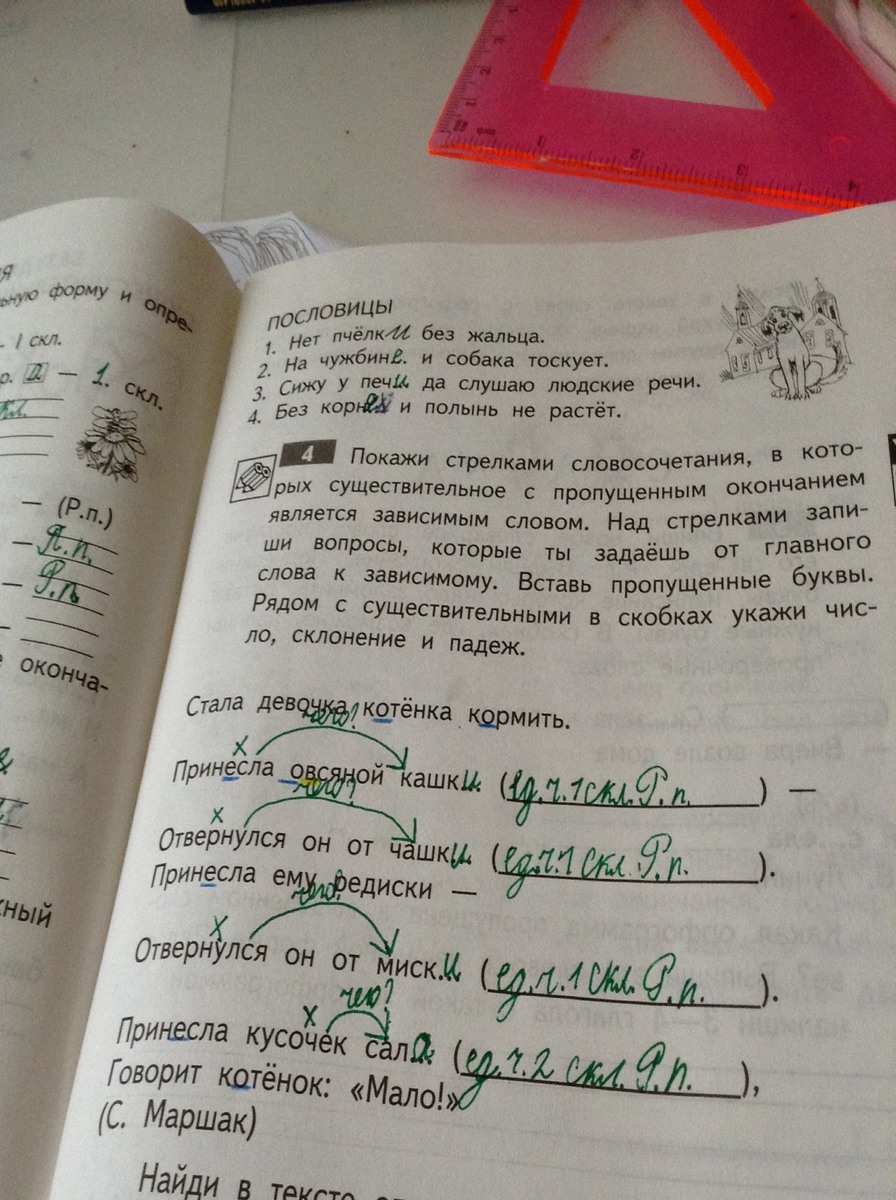 ую форму и опре-
1 скл.
р. а — 1. скл.
— (Р.п.)
— П.п.
— Р.п.
оконча-
ный
ПОСЛОВИЦЫ
1. Нет пчёлки без жальца.
2. На чужбине и собака тоскует.
3. Сижу у печи да слушаю людские речи.
4. Без и полынь не растёт.
4 Покажи стрелками словосочетания, в кото-
рых существительное с пропущенным окончанием
является зависимым словом. Над стрелками запи-
ши вопросы, которые ты задаёшь от главного
слова к зависимому. Вставь пропущенные буквы.
Рядом с существительными в скобках укажи чис-
ло, склонение и падеж.
Стала девочка котёнка кормить.
чего?
х
Принесла овсяной кашки (ед.ч.1скл.Р.п.) —
чего?
х
Отвернулся он от чашки (ед.ч.1 скл.Р.п.).
Принесла ему редиски —
чего?
х
Отвернулся он от миски (ед.ч.1 скл.Р.п.).
чего?
х
Принесла кусочек сала (ед.ч.2 скл.Р.п.),
Говорит котёнок: «Мало!»
(С. Маршак)
Найди в тексте